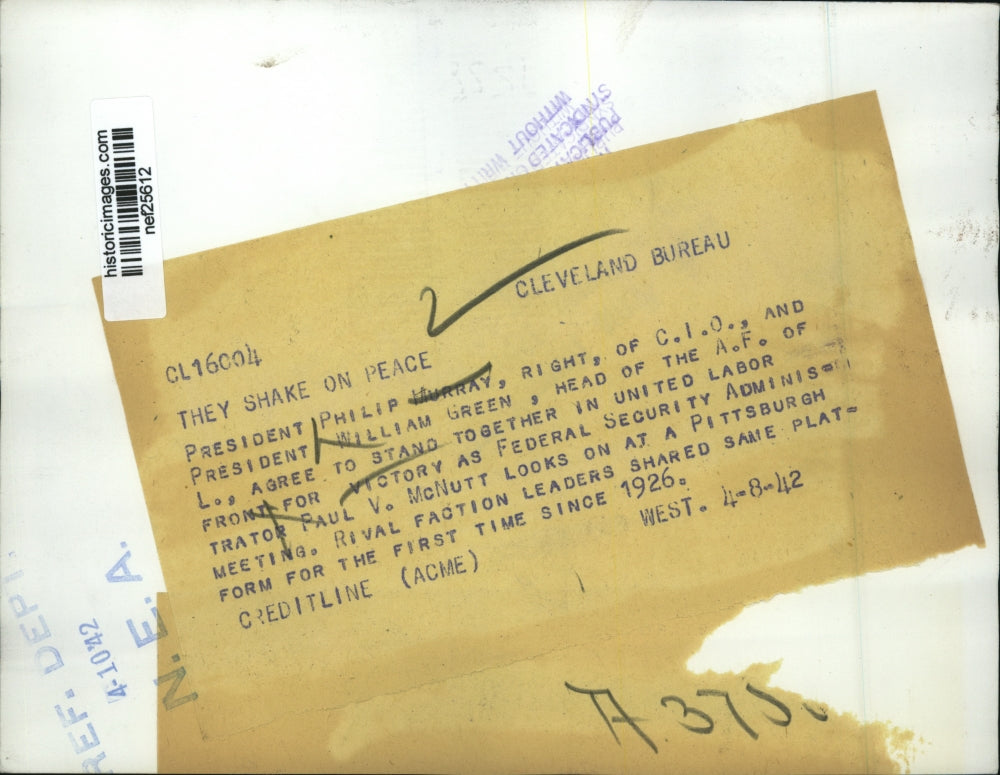 PUBLICA
SYNDICATED
WITHOUT WRIT
historicimages.com
nef25612
2
CLEVELAND BUREAU
CL16004
THEY SHAKE ON PEACE
PRESIDENT PHILIP MURRAY, RIGHT, OF C.I.O., AND
PRESIDENT WILLIAM GREEN , HEAD OF THE A.F. OF
L., AGREE TO STAND TOGETHER IN UNITED LABOR
FRONT FOR VICTORY AS FEDERAL SECURITY ADMINIS-
TRATOR PAUL V. MCNUTT LOOKS ON AT A PITTSBURGH
MEETING. RIVAL FACTION LEADERS SHARED SAME PLAT-
FORM FOR THE FIRST TIME SINCE 1926.
CREDITLINE (ACME) WEST. 4-8-42
REF. DEPT.
4-10-42
N. E. A.